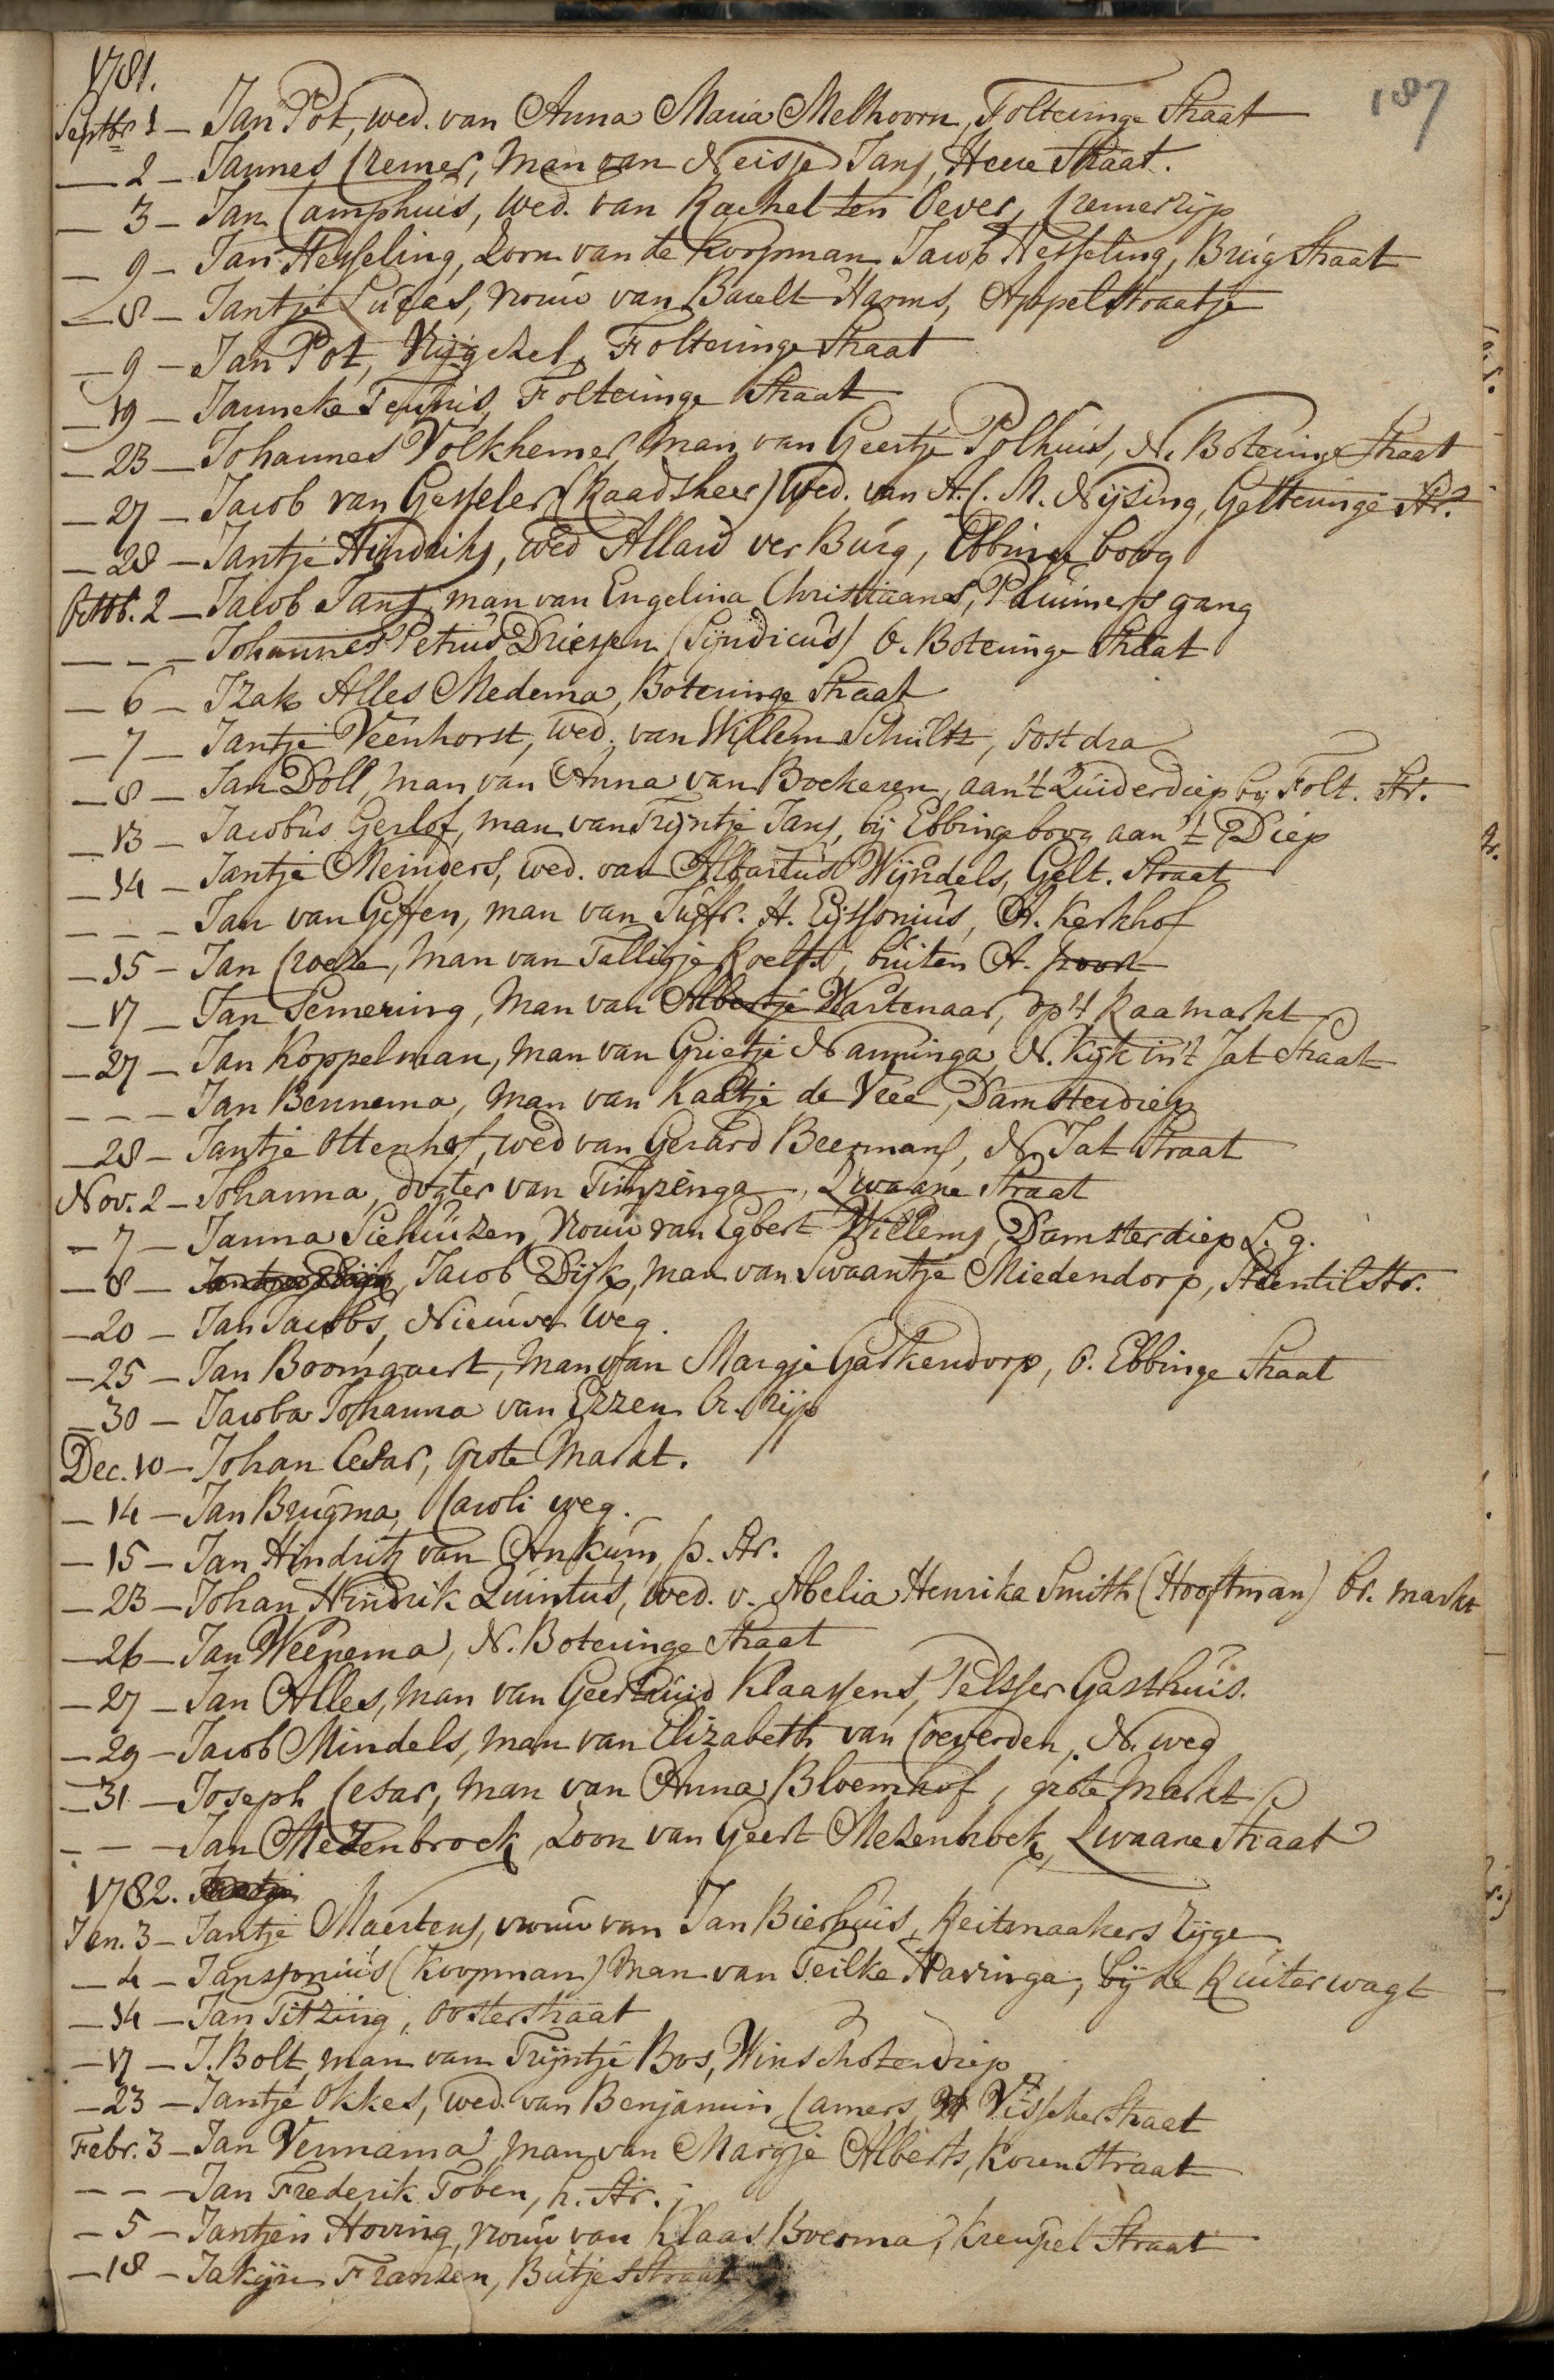 1781.
187
Septbr 1 – Jan Pot, wed. van Anna Maria Melhoorn, Folteringe Straat
— 2 – Jannes Cremer, man van Neisje Jans, Heere Straat.
— 3 – Jan Camphuis, wed. van Rachel ten Oever, Cremerzijp
— 9 – Jan Hesseling, Zoon van de Koopman Jacob Hesseling, Brugstraat
— 8 – Jantje Lucas, vrouw van Barelt Harms, Appelstraatje
— 9 – Jan Pot, Vrijgezel, Folteringe Straat
— 19 – Janneke Teunis, Folteringe Straat
— 23 – Johannes Volkhemer, man van Geertje Polhuis, N. Boteringe Straat
— 27 – Jacob van Gesseler (Raadsheer) Wed. van A. C. M. Nijsing, Gelteringe Str.
— 28 – Jantje Hindriks, wed Allard ver Burg, Ebbinge boog
Octob. 2 – Jacob Jans, man van Engelina Christiaans, Pluimers gang
— – – Johannes Petrus Driessen (Syndicus) O. Boteringe Straat
— 6 – Izak Alles Medema, Boteringe Straat
— 7 – Jantje Veenhorst, wed. van Willem Schultz, Post dra
— 8 – Jan Doll, man van Anna van Bockeren, aan 't Zuiderdiep bij Folt. Str.
— 13 Jacobus Gerlof, man van Trijntje Jans, bij Ebbingeboog aan 't Diep
— 14 – Jantje Meinders, wed. van Albartus Wijndels, Gelt. Straat
— – – Jan van Giffen, man van Juffr. H. Eijssonius, A. Kerkhof
— 15 – Jan Croeze, man van Talligje Roelfs, buiten A. poort
— 17 – Jan Semering, man van Albertje Wartenaar, op 't Raamarkt
— 27 – Jan Koppelman, man van Grietje Nanninga, N. Kijk in't Jat Straat
— – – Jan Bennema, man van Kaatje de Vree, Damsterdiep
— 28 – Jantje Ottenhof, wed van Gerard Beermans, N. Jat Straat
Nov. 2 – Johanna, dogter van Timpenga, Zwaane Straat
— 7 – Janna Siehuizen, vrouw van Egbert Willems, Damsterdiep L. g.
— 8 – Jacob Dijk, man van Swaantje Miedendorp, Steentilstr.
— 20 – Jan Jacobs, Nieuwer weg.
— 25 – Jan Boomgaert, man van Margje Garkendorp, O. Ebbinge Straat
— 30 – Jacoba Johanna van Ezzen Cr. rijp
Dec. 10 – Johan Cesar, grote Markt.
— 14 – Jan Brugma, Caroli weg.
— 15 – Jan Hindrik van Ankum, p. Str.
— 23 – Johan Hindrik Quintus, wed. v. Abelia Henrika Smith (Hooftman) br. markt
— 26 – Jan Weenema, N. Boteringe Straat
— 27 – Jan Alles, man van Geertruid Klaassens, Pelsser Gasthuis.
— 29 – Jacob Mindels, man van Elizabeth van Coeverden, N. weg
— 31 – Joseph Cesar, man van Anna Bloemhof, grote Markt
– – – Jan Mezenbroek, Zoon van Geert Mezenbroek, Zwaane Straat
1782.
Jan. 3 – Jantje Maertens, vrouw van Jan Bierhuis, Reitemaakers rijge
— 4 – Janssonius (koopman) man van Teilke Havinga, bij de Ruiterwagt
— 14 – Jan Titzing, Oosterstraat
— 17 – J. Bolt, man van Trijntje Bos, Winschoterdiep
— 23 – Jantje Okkes, wed. van Benjamin Camers, Visscherstraat
Febr. 3 – Jan Vennama, man van Margje Alberts, Koren Straat
– – – Jan Frederik Toben, h. Str.
— 5 – Jantjen Hoving, vrouw van Klaas Boerma, Kreupel Straat
— 18 – Jakijn Franken, Butjesstraat